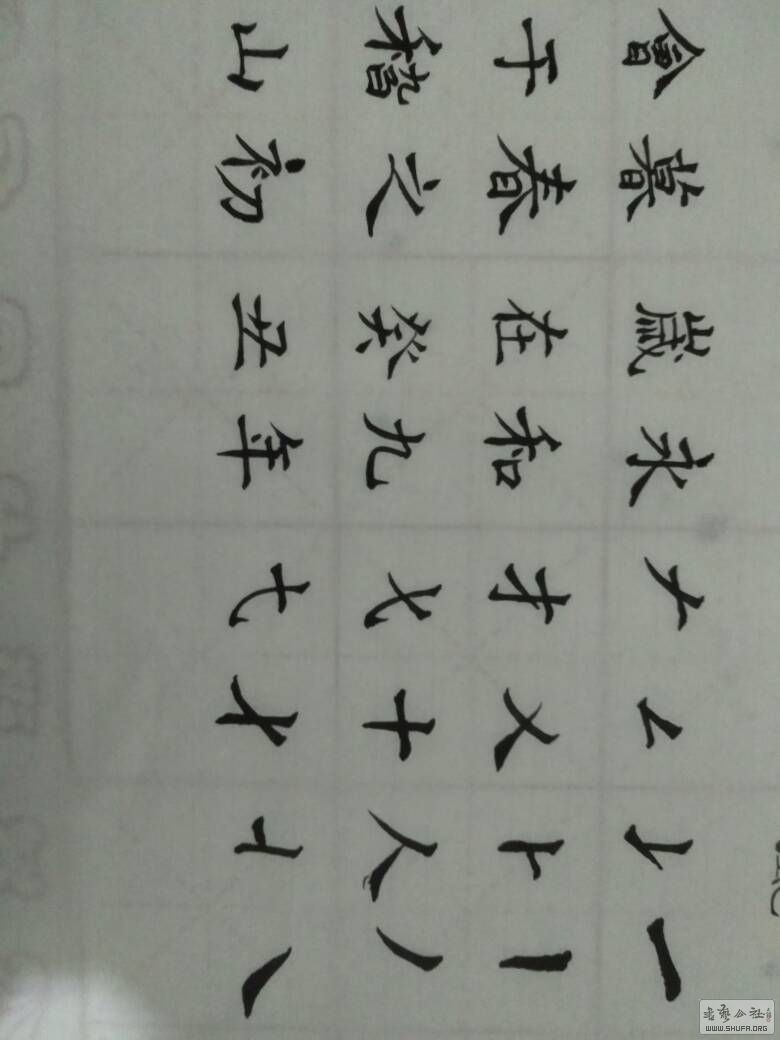 一丨丿㇏
⺊人
乂十
𠂇才七
永和九年
歲在癸丑
暮春之初
會于稽山
書藝公社
WWW.SHUFA.ORG